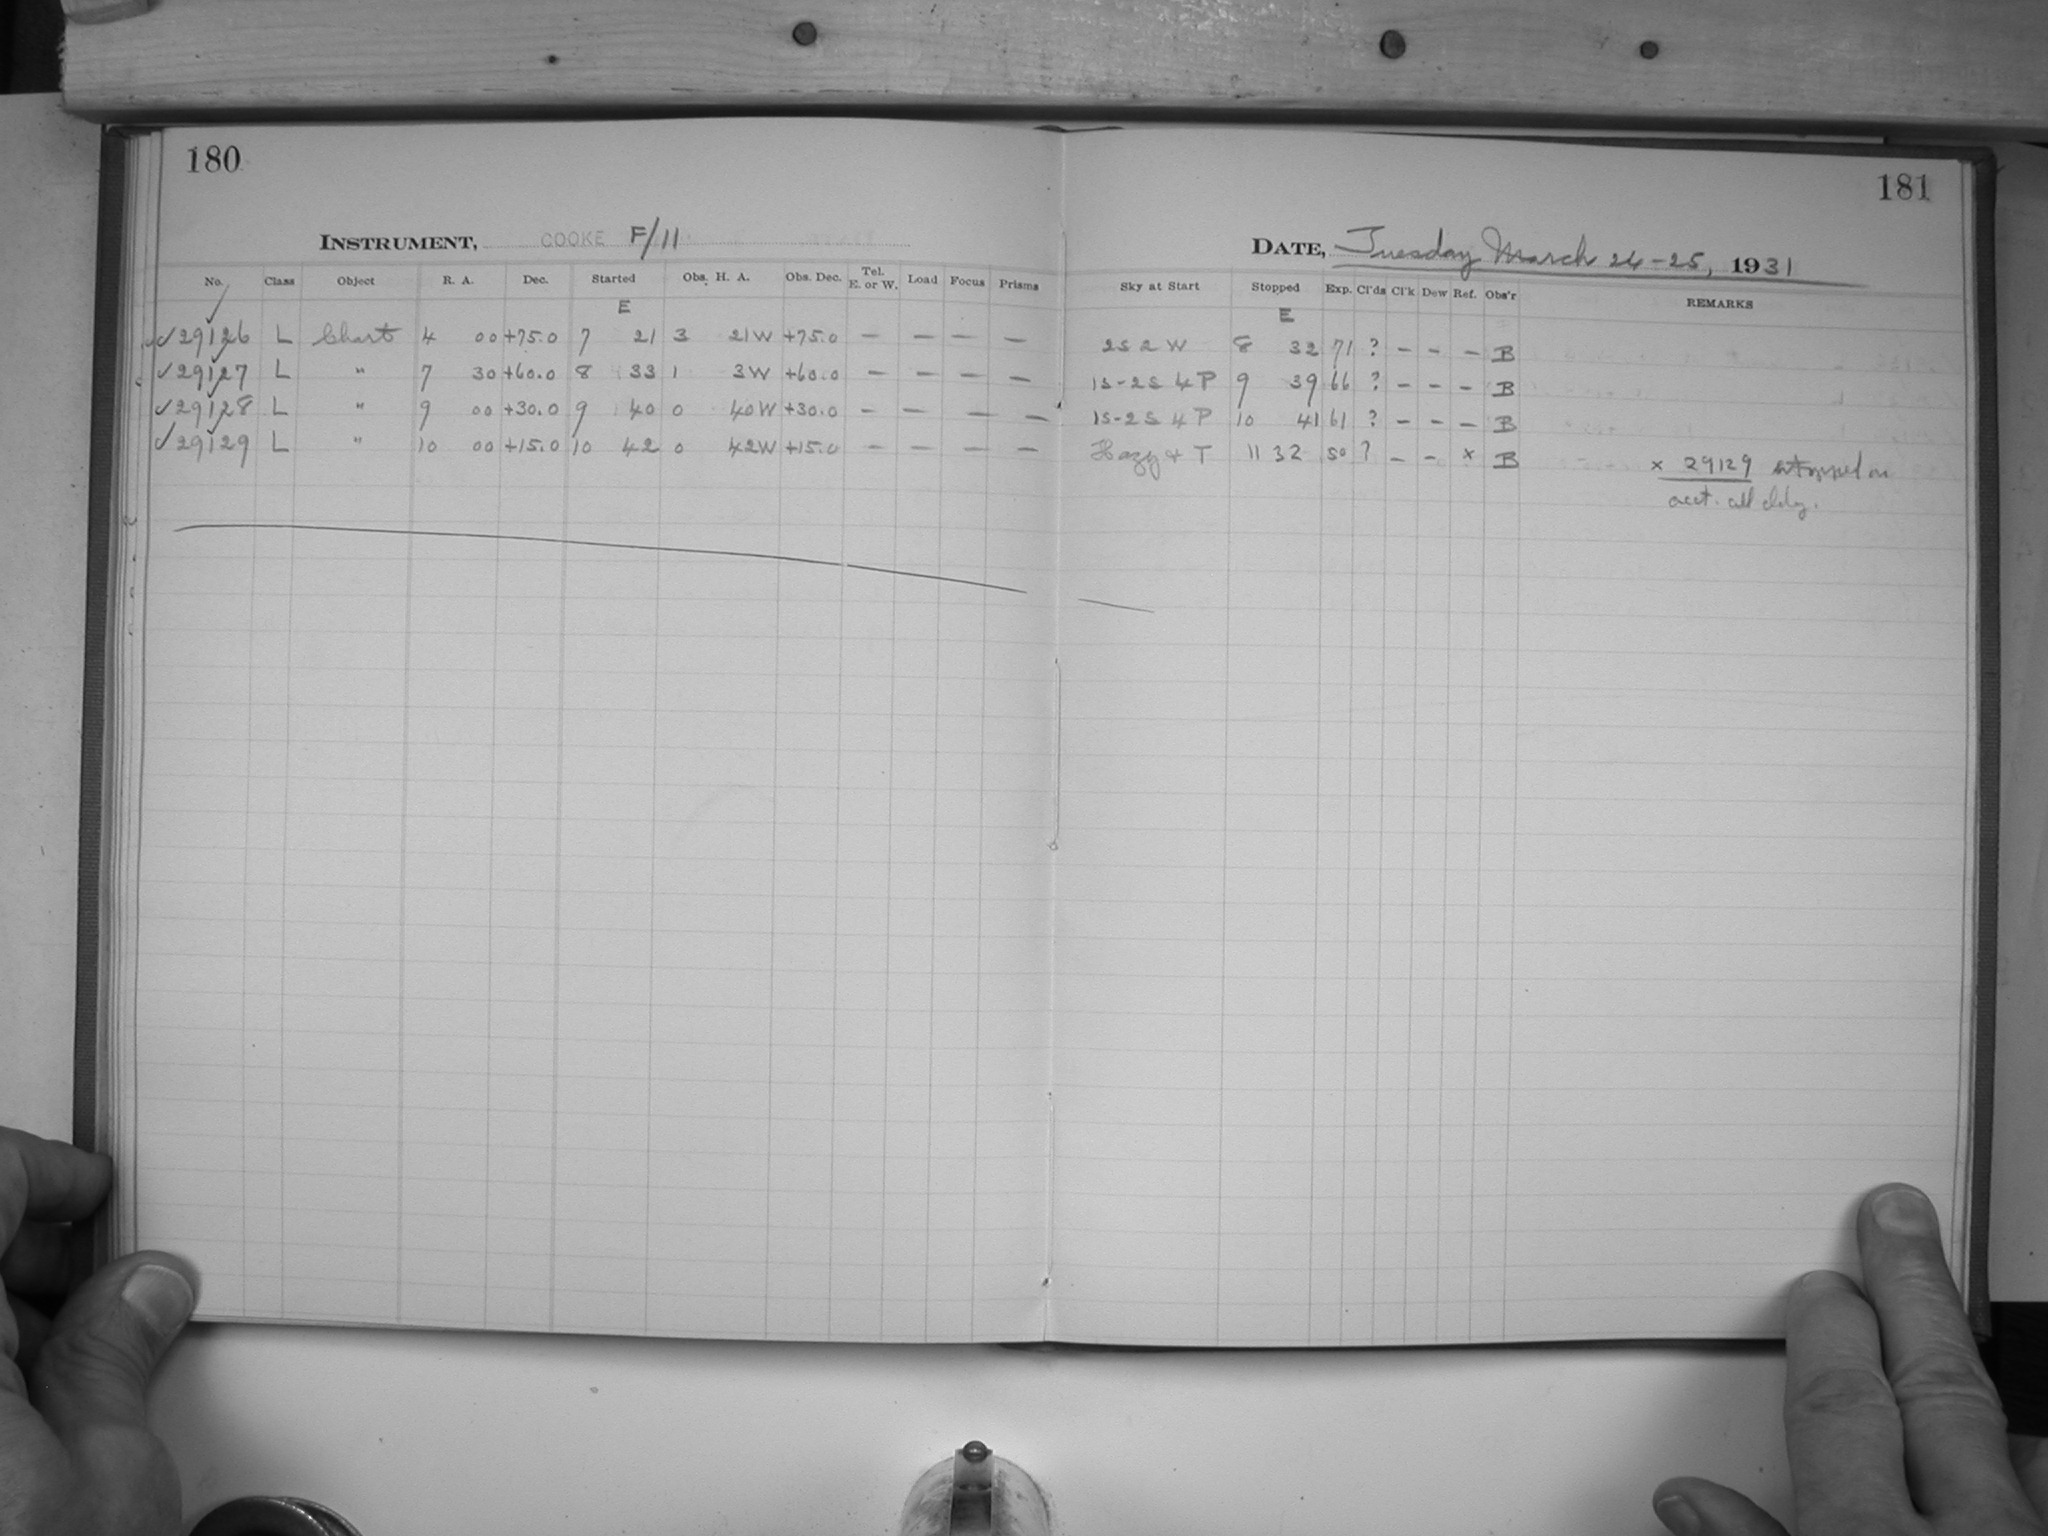 180
INSTRUMENT, COOKE F/11
No. Class Object R. A. Dec. Started Obs. H. A. Obs. Dec. Tel. E. or W. Load Focus Prisms
E
✓29126 L Chart 4 00 +75.0 7 21 3 21W +75.0 — — — —
✓29127 L " 7 30 +60.0 8 33 1 3W +60.0 — — — —
✓29128 L " 9 00 +30.0 9 40 0 40W +30.0 — — — —
✓29129 L " 10 00 +15.0 10 42 0 42W +15.0 — — — —
181
DATE, Tuesday March 24-25, 1931
Sky at Start Stopped Exp. Cl'ds Cl'k Dew Ref. Obs'r REMARKS
E
2S 2 W 8 32 71 ? — — — B
1S-2S 4 P 9 39 66 ? — — — B
1S-2S 4 P 10 41 61 ? — — — B
Hazy + T 11 32 50 ? — — x B x 29129 stopped on
acct. cldy.